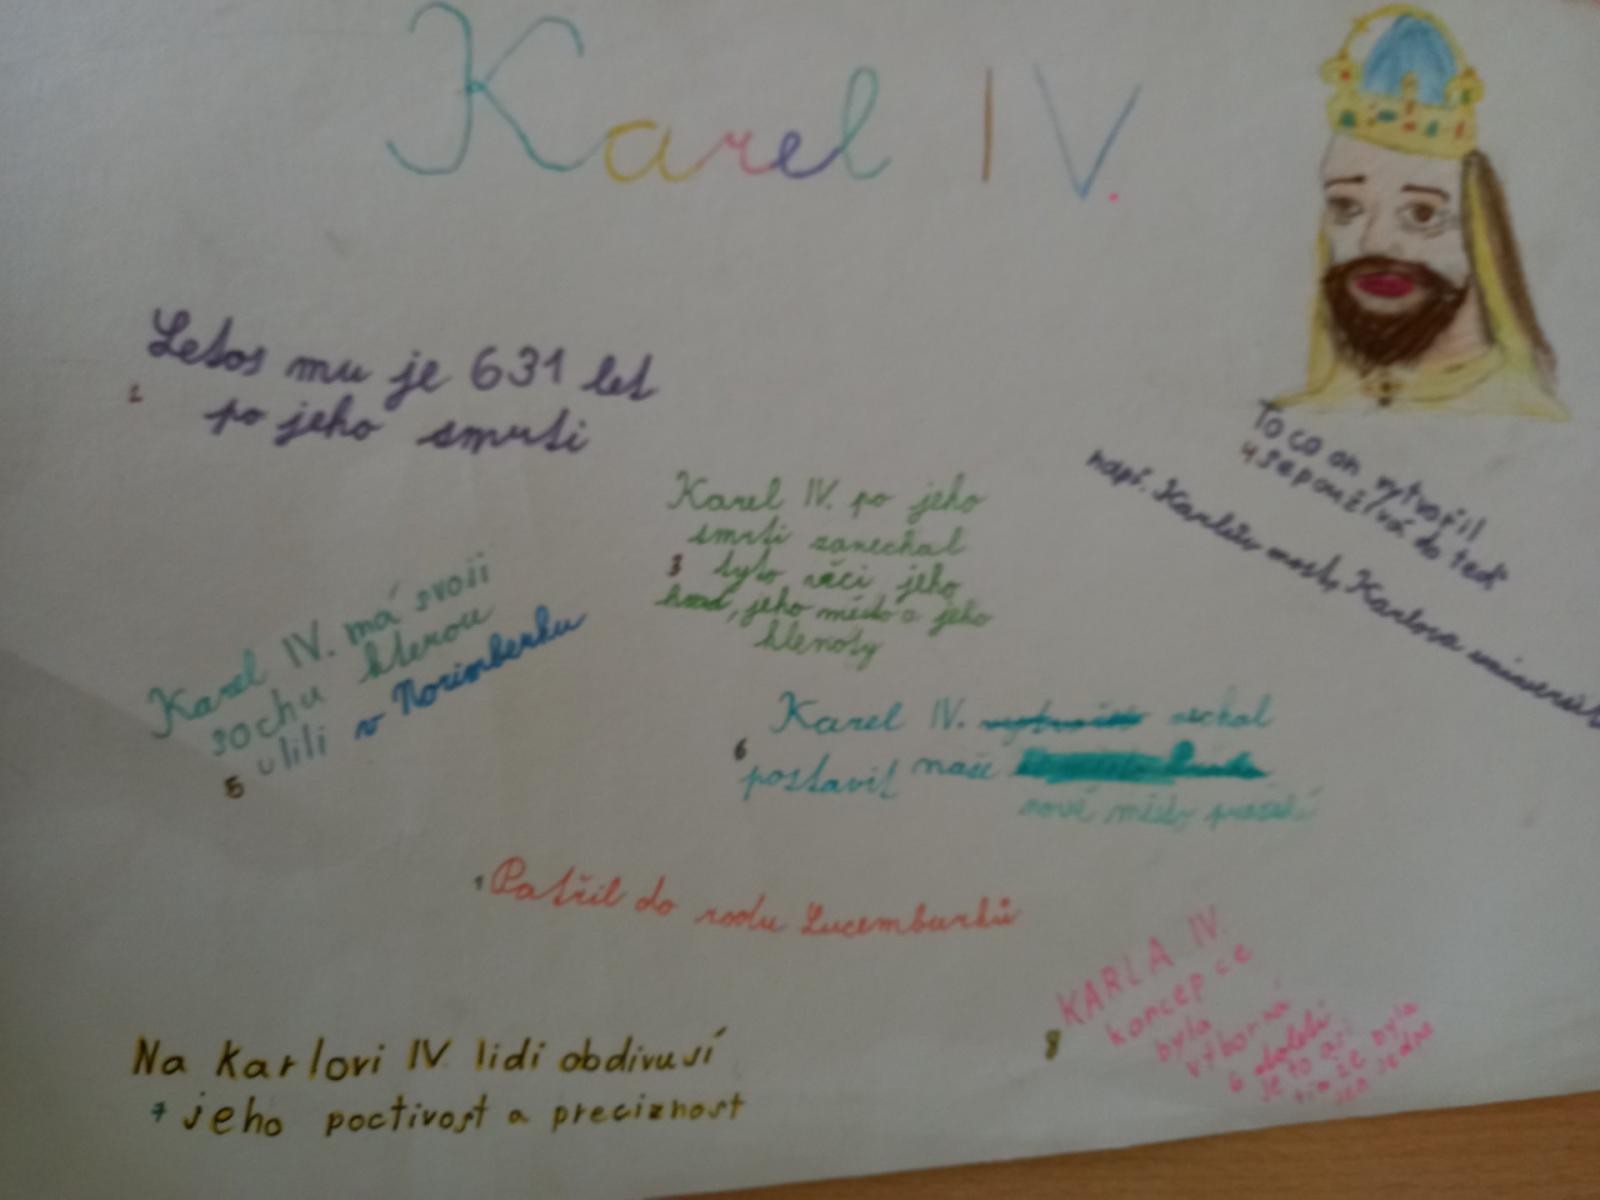 Karel IV.
Letos mu je 631 let
2 po jeho smrti
To co on vytvořil
4 se používá do teď
např. Karlův most, Karlova
Karel IV. po jeho
smrti zanechal
3 tyto věci jeho
hrad, jeho město a jeho
klenoty
Karel IV. má svoji
sochu kterou
5 ulili v Norimberku
Karel IV. nechal
6 postavit naše
nové město pražské
1 Patřil do rodu Lucemburků
KARLA IV.
koncepce
8 byla
výborná
je to asi
tím že byla
jen jedna
Na Karlovi IV. lidi obdivují
7 jeho poctivost a preciznost